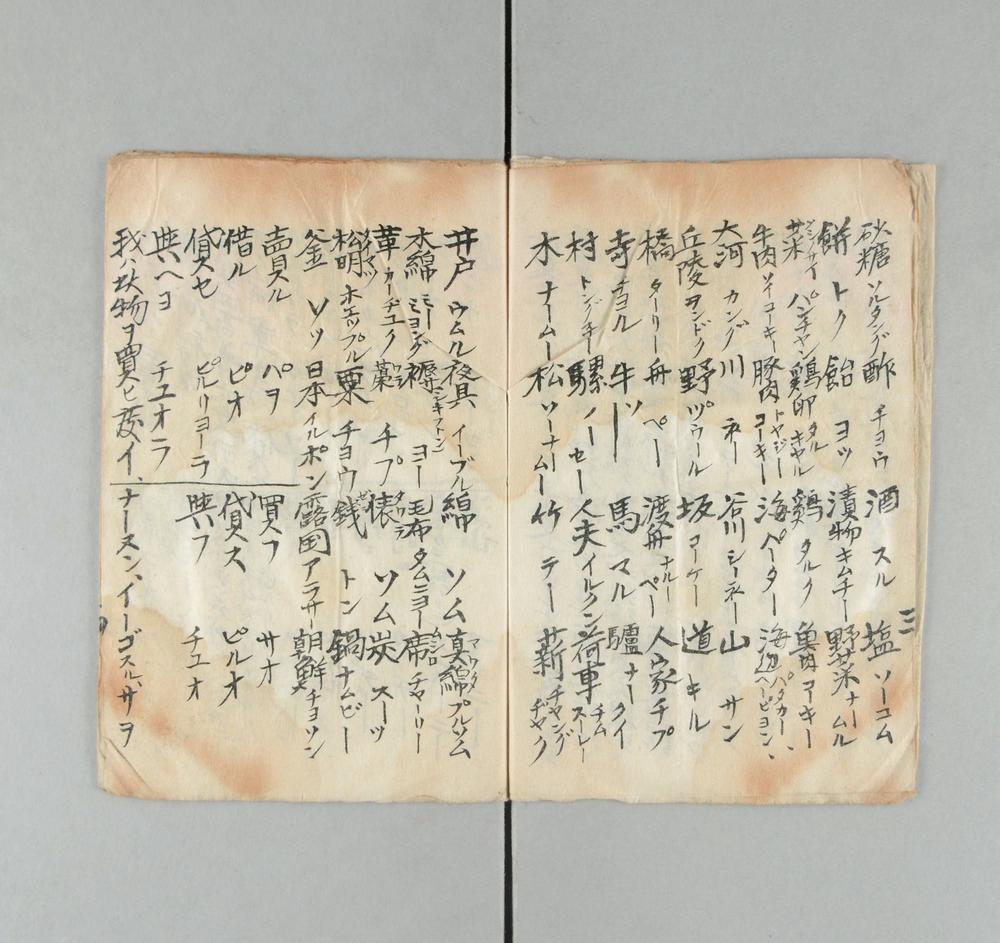 砂糖 ソルタング 酢 チョウ 酒 スル 塩 ソーコム
餅 トク 飴 ヨッ 漬物 キムチー 野菜 ナームル
パンチャン 鶏卵 タルキャル 鶏 タルク 魚肉 コーキー
牛肉 ソイコーキー 豚肉 トヤジーコーキー 海 ペーター 海辺 ヘーピョン、パタカー、
大河 カング 川 ネー 谷川 シーネー 山 サン
丘陵 ヲンドク 野 ヅウール 坂 コーケー 道 キル
橋 ターリー 舟 ペー 渡舟 ナルーペー 人家 チプ
寺 チョル 牛 ソー 馬 マル 驢 ナークイ
村 トングチー 騾 ノーセー 人夫 イルクン 荷車 チムスーレー
木 ナームー 松 ソーナームー 竹 テー 薪 チャングヂャク
三
井戸 ウムル 夜具 イーブル 綿 ソム 真綿 マワタ プルソム
木綿 ミョング 褥 シキフトン ヨー 毛布 タムニョー 席 ムシロ チャーリー
革 カーチュク 藁 ワラ チプ 俵 タワラ ソム 炭 スーツ
松明 タイマツ ホエップル 粟 チョウ 銭 ゼニ トン 鍋 ナムビー
釜 ソッ 日本 イルポン 露国 アラサー 朝鮮 チョソン
売ル パヲ 買フ サオ
借ル ピオ 貸ス ピルオ
貸セ ピルリョーラ 與フ チュオ
與ヘヨ チュオラ
我、此物ヲ買ヒ度イ、ナースン、イーゴスル、サヲ